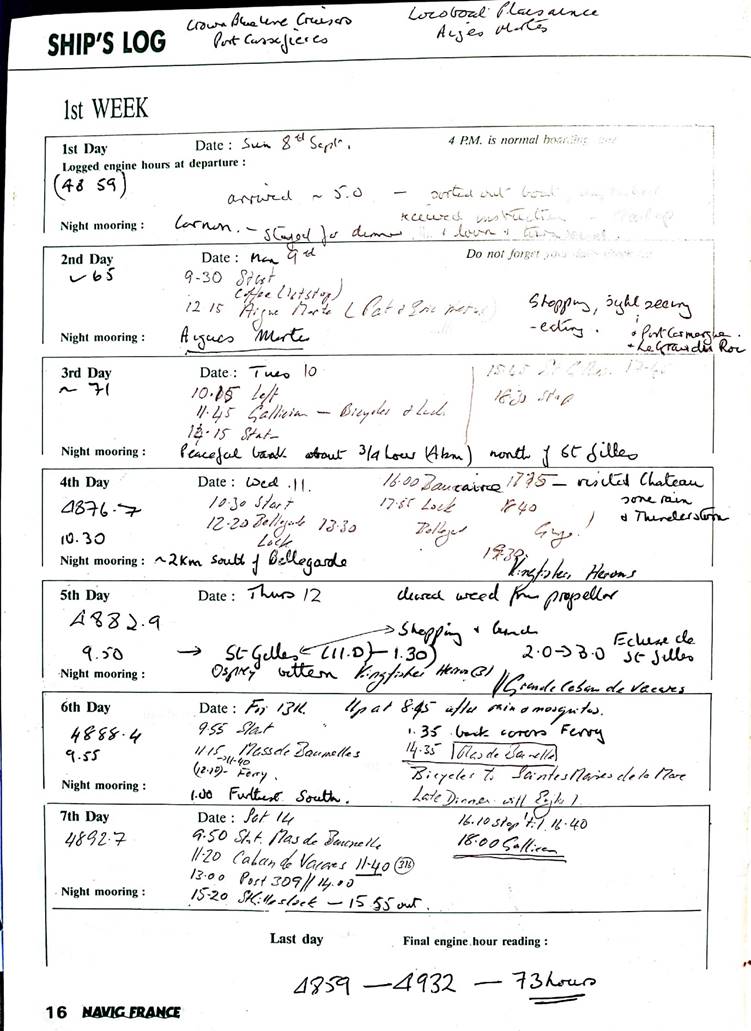 SHIP'S LOG
Crown Blueline Cruisers
Port Cassafieres
Locaboat Plaisance
Aigues Mortes
1st WEEK
1st Day Date : Sun 8th Sept. 4 P.M. is normal boarding
Logged engine hours at departure :
(48 59)
arrived ~ 5.0 — sorted out boat,
received instruction
Night mooring : Carnon. — stayed for dinner
2nd Day Date : Mon 9th Do not forget
✓ 65 9-30 Start
Coffee (1st stop)
12 15 Aigue Morte (Pat & Eric
Shopping, sight seeing
- eating. Port Camargue
+ Le Grau du Roi
Night mooring : Aigues Mortes
3rd Day Date : Tues 10
~ 71 10.15 Left
11.45 Gallician — Bicycles & Lock
14-15 Start
15.45 St Gilles 17-45
18.30 Stop
Night mooring : Peaceful bank about 3/4 hour (4km) north of St Gilles
4th Day Date : Wed .11.
4876.7 10.30 Start
10.30 12-20 Bellegarde 13.30
Lock
16.00 Beaucaire 17.35 — visited Chateau
some rain
& Thunderstorm
17.55 Lock 1840
Bellegarde
19.30
Night mooring : ~2km south of Bellegarde
Kingfisher, Herons
5th Day Date : Thurs 12 cleared weed from propellor
4882.9
→ Shopping & lunch
9.50 → St Gilles (11.0 — 1.30) 2.0 → 3.0 Ecluse de
St Gilles
Night mooring : Osprey bittern Kingfisher Heron (3) // Grande Caban de Vacares
6th Day Date : Fri 13th. Up at 8.45 after rain & mosquitos.
4888.4 9.55 Start
9.55 11.15 Mas de Baumelles
→11-40
(12.10)- Ferry.
1.00 Furthest South.
1.35 back covers Ferry
14.35 Mas de Baumelle
Bicycles to Saintes Maries de la Mare
Late Dinner
Night mooring :
7th Day Date : Sat 14
4892.7 9.50 Start. Mas de Baumelle
11-20 Caban de Vacares 11-40 (316)
13.00 Post 309 // 14.00
15-20 St Gilles lock — 15.55 out.
16.10 stop 'til 16-40
18.00 Gallician
Night mooring :
Last day Final engine hour reading :
4859 — 4932 — 73 hours
16 NAVIG FRANCE